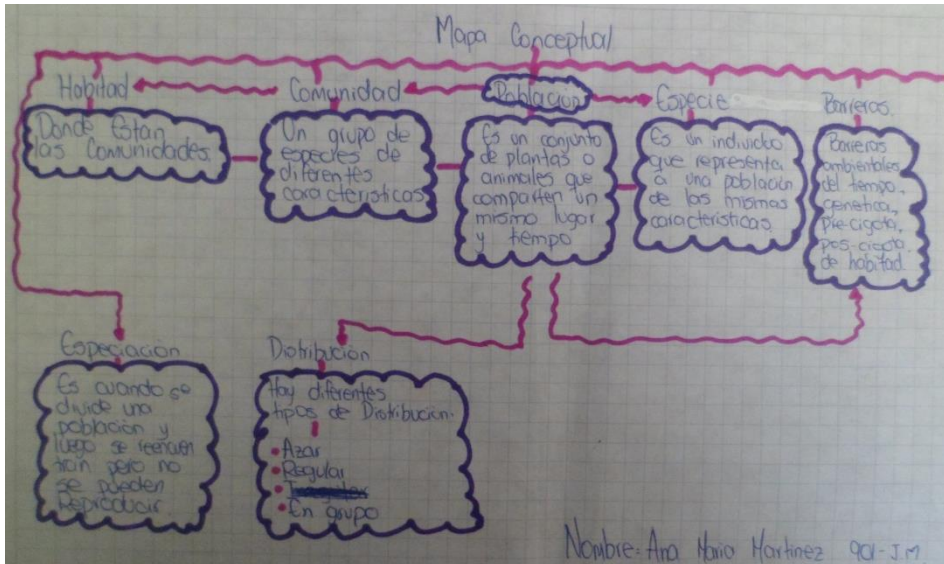 Mapa Conceptual
Habitad
Donde Estan
las Comunidades.
Comunidad
Un grupo de
especies de
diferentes
caracteristicas
Poblacion
Es un conjunto
de plantas o
animales que
comparten un
mismo lugar
y tiempo
Especie
Es un individuo
que representa
a una población
de las mismas
caracteristicas.
Barreras.
Barreras
ambientales
del tempo,
genetica,
pre-cigota,
pos-cigota.
de habitad.
Especiación
Es cuando se
divide una
población y
luego se reencuen
tran pero no
se pueden
Reproducir.
Distribucion
Hay diferentes
tipos de Distribucion.
• Azar
• Regular
• En grupo
Nombre: Ana Maria Martinez 901-J.M